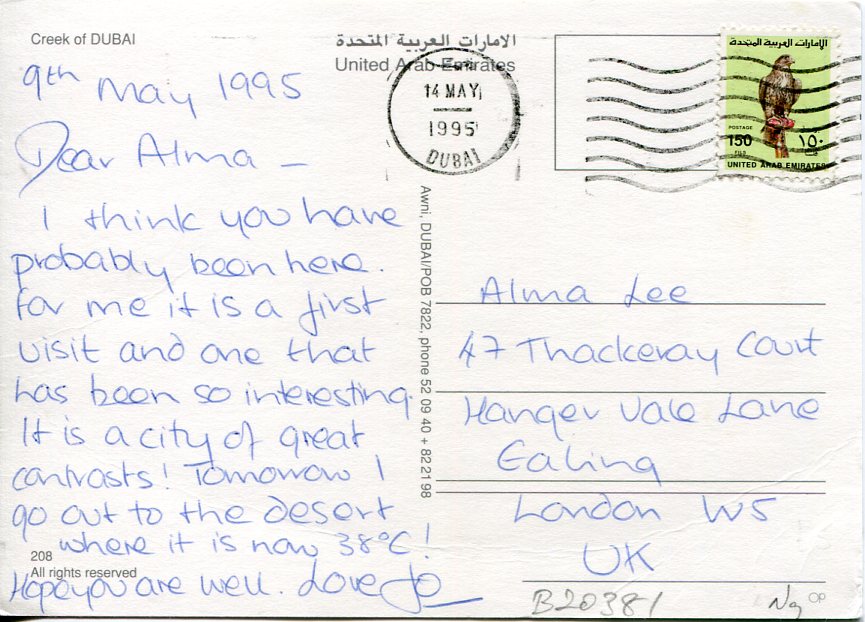 Creek of DUBAI
الامارات العربية المتحدة
United Arab Emirates
14 MAY
1995
DUBAI
الإمارات العربية المتحدة
POSTAGE
150
FILS
١٥٠
فلسا
UNITED ARAB EMIRATES
9th May 1995
Dear Alma –
I think you have
probably been here.
For me it is a first
visit and one that
has been so interesting.
It is a city of great
contrasts! Tomorrow I
go out to the desert
where it is now 38°C!
Hope you are well. Love Jo
208
All rights reserved
Awni, DUBAI/POB 7822, phone 52 09 40 + 82 21 98
Alma Lee
47 Thackeray Court
Hanger Vale Lane
Ealing
London W5
UK
B20381
OP